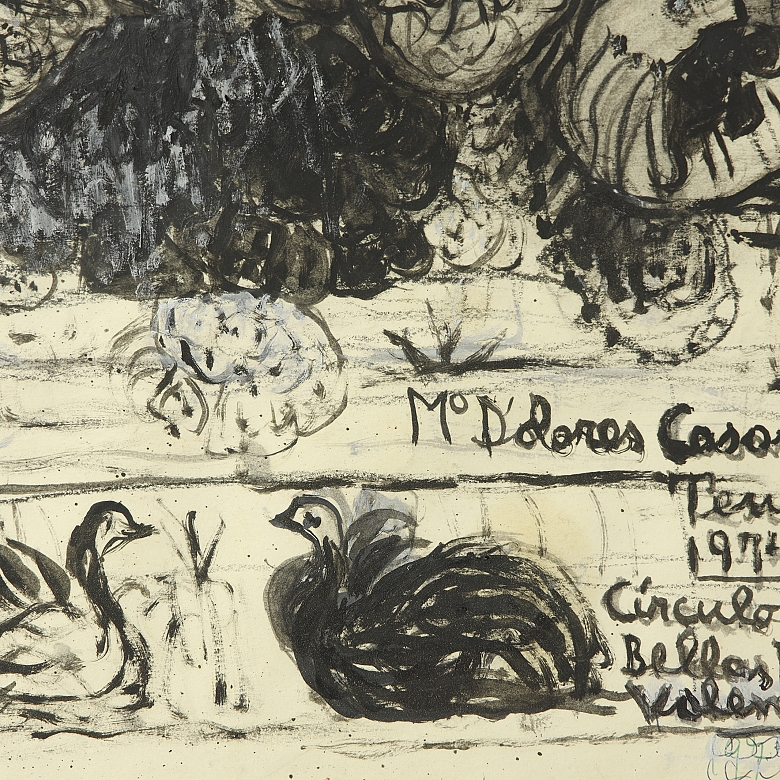 Mº D'olores Casa
Ten
197
Círculo
Bellas
Valen